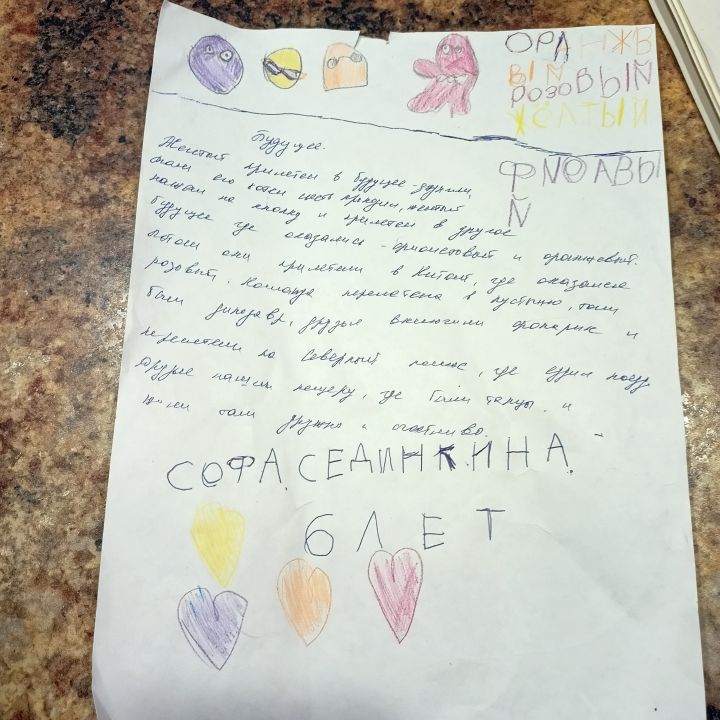 ОРАНЖВ
ЫЙ
РОЗОВЫЙ
ЖЁЛТЫЙ
ФИОЛАВЫ
Й
Будущее.
Желтый прилетел в будущее,
его хотел съесть крокодил, желтый
нажал на кнопку и прилетел в другое
будущее где оказались фиолетовый и оранжевый.
Потом они прилетели в Китай, где оказался
розовый. Команда перелетела в пустыню, там
были динозавры, друзья включили фонарик и
перелетели на Северный полюс, где ездил поезд.
Друзья нашли пещеру, где были танцы. и
жили там дружно и счастливо.
СОФА СЕДИНКИНА.
6 ЛЕТ